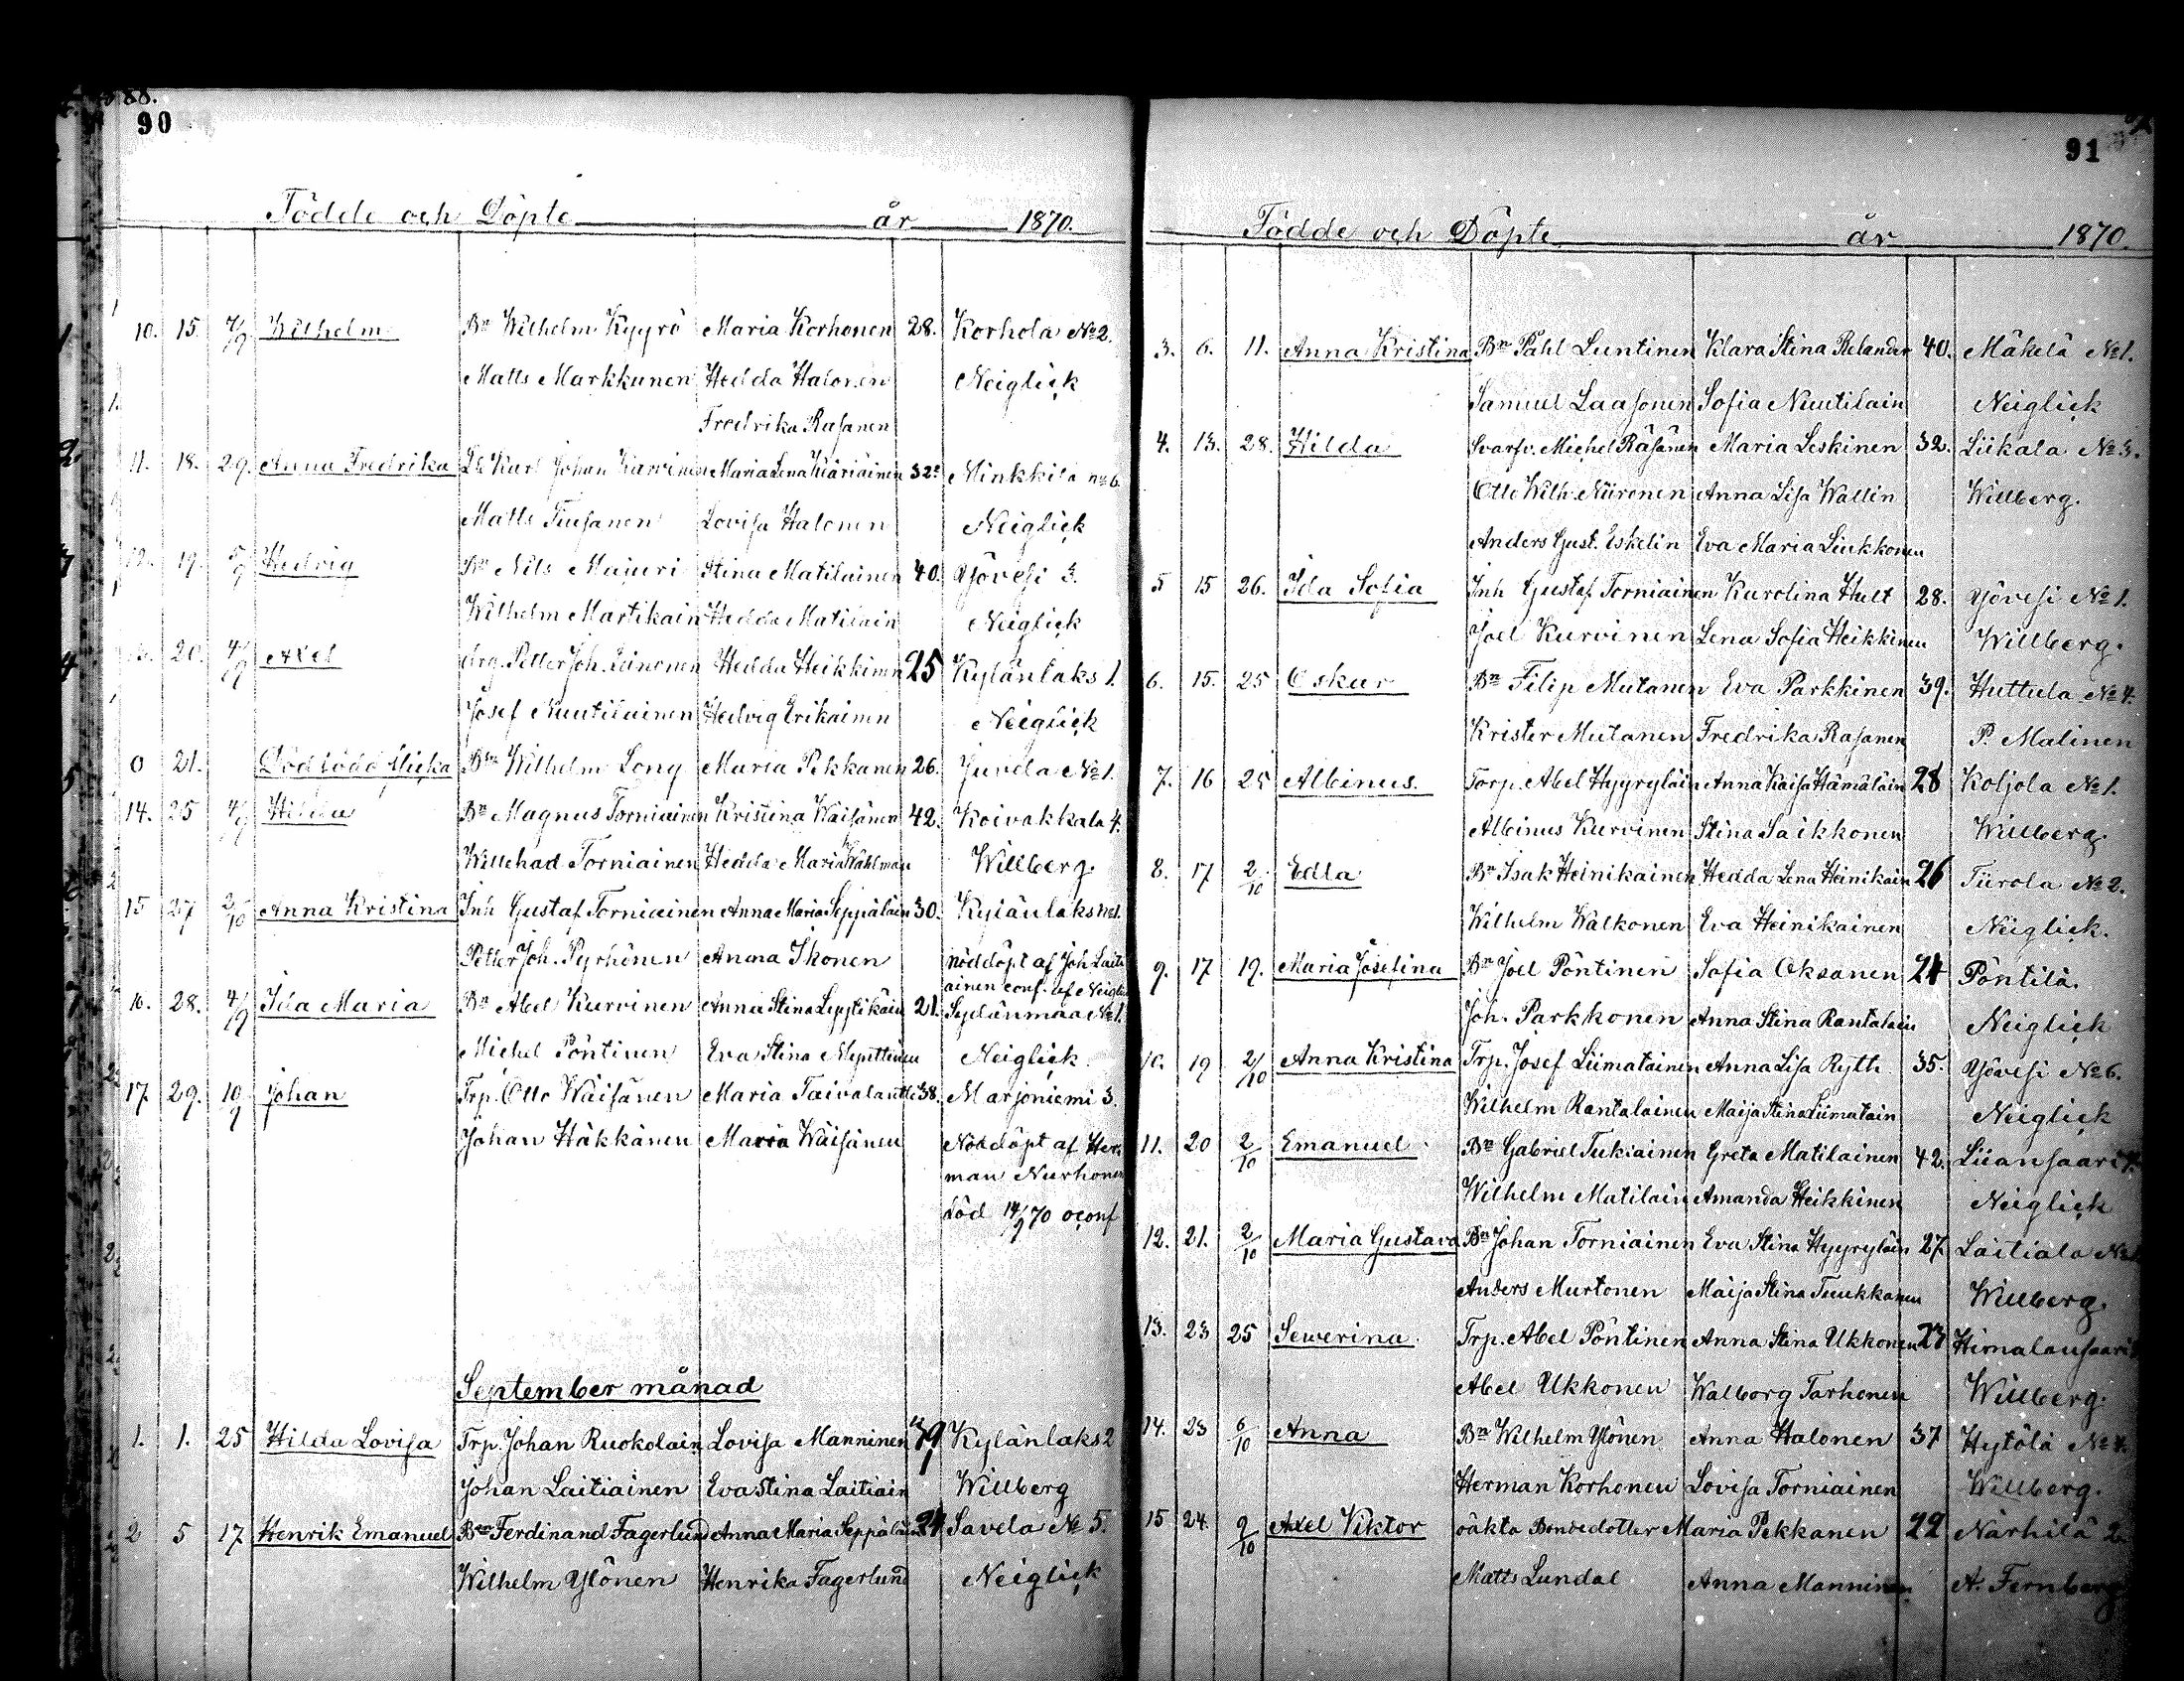 88.
90
Födde och Döpte år 1870.
10. 15. 4/9 Wilhelm Bn Wilhelm Kyyrö Maria Korhonen 28. Korhola No 2.
Matts Markkunen Hedda Halonen Neiglick
Fredrika Räsänen
11. 18. 29. Anna Fredrika Karl Johan Karvinen Maria Lena Kiäriäinen 32 Minkkilä no 6.
Matts Tiusanen Lovisa Halonen Neiglick
12. 19. 5/9 Hedvig Bn Nils Majuri Stina Matilainen 40. Yövesi 3.
Wilhelm Martikain Hedda Matilain Neiglick
20. 4/9 Axel Petter Joh. Hedda Heikkinen 25 Kylänlaks 1.
Josef Nuutilainen Hedvig Erikainen Neiglick
0 21. Dödfödd flicka Bn Wilhelm Long Maria Pekkanen 26. Juvola No 1.
14. 25 4/9 Hilda Bn Magnus Torniainen Kristina Wäisänen 42. Koivakkala 4.
Willehad Torniainen Hedda Maria Wahlman Willberg.
15 27 2/10 Anna Kristina Inh Gustaf Torniainen Anna Maria Seppäläin 30. Kylänlaks no 1.
Petter Joh. Pyrhönen Anna Ikonen nöddöpt af Joh Laiti
ainen conf. af Neiglick
16. 28. 4/9 Ida Maria Bn Abel Kurvinen Anna Stina Lyytikäin 21. Sydänmaa No 1.
Michel Pöntinen Eva Stina Mynttinen Neiglick
17. 29. 10/9 Johan Trp. Otto Wäisänen Maria Taivalantti 38. Marjoniemi 3.
Johan Häkkänen Maria Wäisänen Nöddöpt af Her
man Nurhonen
död 14/9 70 oconf
September månad
1. 1. 25 Hilda Lovisa Trp. Johan Ruokolain Lovisa Manninen 49 Kylänlaks 2
Johan Laitiainen Eva Stina Laitiain Willberg
2 5 17 Henrik Emanuel Bn Ferdinand Fagerlund Anna Maria Seppäläin 24 Savela No 5.
Wilhelm Ylönen Henrika Fagerlund Neiglick
91
Födde och Döpte år 1870.
3. 6. 11. Anna Kristina Bn Påhl Luntinen Klara Stina Relander 40. Mäkelä No 1.
Samuel Laasonen Sofia Nuutilain Neiglick
4. 13. 28. Hilda Svarfv. Michel Räsänen Maria Leskinen 32. Liikala No 3.
Otto Wilh. Niironen Anna Lisa Wallin Willberg.
Anders Gust. Eskelin Eva Maria Liukkonen
5 15 26. Ida Sofia Inh Gustaf Torniainen Karolina Hult 28. Yövesi No 1.
Joel Kurvinen Lena Sofia Heikkinen Willberg.
6. 15. 25 Oskar Bn Filip Mutanen Eva Parkkinen 39. Huttula No 4.
Krister Mutanen Fredrika Rasanen P. Malinen
7. 16 25 Albinus. Torp. Abel Hyyryläin Anna Kaisa Hämäläin 28 Koljola No 1.
Albinus Kurvinen Stina Saikkonen Willberg.
8. 17 2/10 Edla Bn Isak Heinikainen Hedda Lena Heinikain 26 Tiirola No 2.
Wilhelm Walkonen Eva Heinikainen Neiglick.
9. 17 19. Maria Josefina Bn Joel Pöntinen Sofia Oksanen 24 Pöntilä.
Joh. Parkkonen Anna Stina Rantalain Neiglick
10. 19 2/10 Anna Kristina Trp. Josef Liimatainen Anna Lisa Ryth 35. Yövesi No 6.
Wilhelm Rantalainen Maija Stina Liimatain Neiglick
11. 20 2/10 Emanuel Bn Gabriel Tukiainen Greta Matilainen 42. Liiansaari
Wilhelm Matilain Amanda Heikkinen Neiglick
12. 21. 2/10 Maria Gustava Bn Johan Torniainen Eva Stina Hyyryläin 27. Laitiala No
Anders Murtonen Maija Stina Tuukkanen Willberg.
13. 23 25 Sewerina. Trp. Abel Pöntinen Anna Stina Ukkonen 23 Himalansaari
Abel Ukkonen Walborg Tarhonen Willberg.
14. 23 6/10 Anna Bn Wilhelm Ylönen Anna Halonen 37 Hytölä No 4.
Herman Korhonen Lovisa Torniainen Willberg.
15 24. 9/10 Axel Viktor oäkta Bondedotter Maria Pekkanen 22 Närhilä 2
Matts Lundal Anna Manninen A. Fernberg